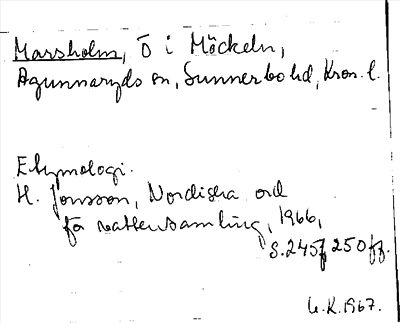 Marsholm, Ö i Möckeln,
Agunnaryds sn, Sunnerbo hd, Kron. l.
Etymologi.
H. Jonsson, Nordiska ord
för vattensamling, 1966,
s. 245f, 250ff.
G.K. 1967.